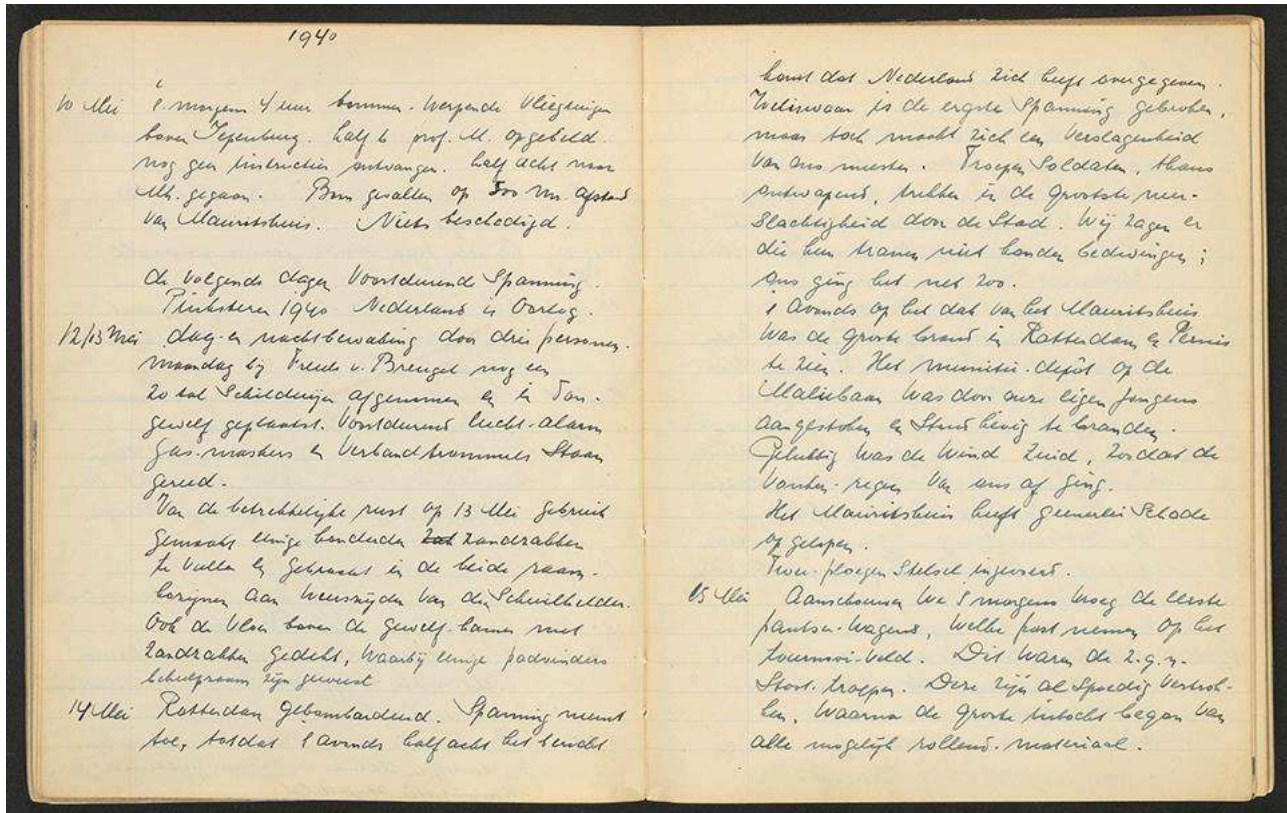 1940
10 Mei 's morgens 4 uur bommen-werpende vliegtuigen
boven Ypenburg. half 6 prof. M. opgebeld.
nog geen instructies ontvangen. half acht naar
Mh. gegaan. Bom gevallen op 500 m. afstand
van Mauritshuis. Niets beschadigd.
de volgende dagen Voortdurende Spanning.
Pinksteren 1940 Nederland in Oorlog.
12/13 Mei dag- en nachtbewaking door drie personen.
maandag bij Freule v. Brengel nog een
20 tal Schilderijen afgenomen en in
gewelf geplaatst. Voortdurend lucht-alarm
Gas-maskers en Verbandtrommels Staan
gereed.
Van de betrekkelijke rust op 13 Mei gebruik
gemaakt eenige honderden zandzakken
te vullen en gebracht in de beide raam-
kozijnen aan weerszijden van de Schuilkelder.
Ook de vloer boven de gewelf-kamer met
zandzakken gedekt, waarbij eenige padvinders
behulpzaam zijn geweest
14 Mei Rotterdam gebombardeerd. Spanning neemt
toe, totdat 's avonds half acht het bericht
komt dat Nederland zich heeft overgegeven.
Weliswaar is de ergste Spanning gebroken,
maar toch maakt zich een Verslagenheid
van ons meester. Troepen Soldaten, thans
ontwapend, trekken in de grootste neer-
slachtigheid door de Stad. Wij zagen er
die hun tranen niet konden bedwingen;
ons ging het net zoo.
's Avonds op het dak van het Mauritshuis
was de groote brand in Rotterdam en Pernis
te zien. Het munitie-depôt op de
Maliebaan was door onze eigen jongens
aangestoken en Stond hevig te branden.
Gelukkig was de wind Zuid, zoodat de
vonken-regen van ons af ging.
Het Mauritshuis heeft geenerlei Schade
opgelopen.
Twee-ploegen Stelsel ingevoerd.
15 Mei Aanschouwen we 's morgens vroeg de eerste
pantser-wagens, welke post nemen op het
tournooi-veld. Dit waren de z.g.n.
Stoot-troepen. Deze zijn al Spoedig vertrok-
ken, waarna de groote intocht began van
alle mogelijk rollend-materiaal.